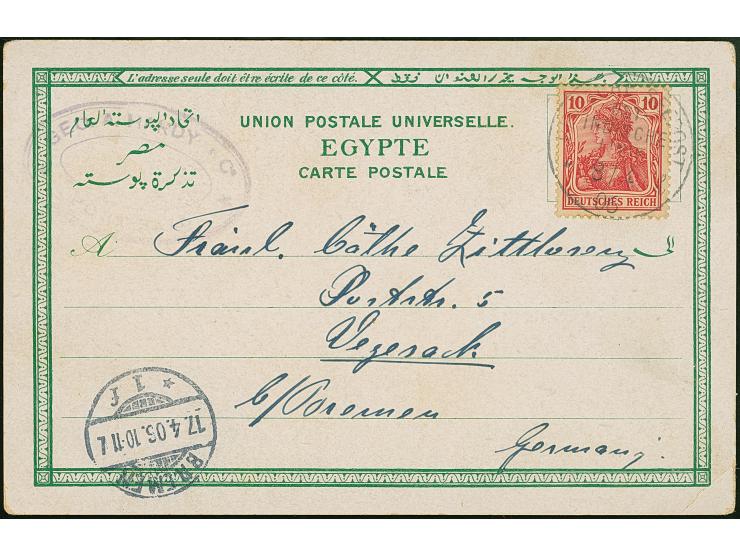 L'adresse seule doit être écrite de ce côté.
اتحاد البوسته العام
مصر
تذكرة بوسته
UNION POSTALE UNIVERSELLE.
EGYPTE
CARTE POSTALE
10 10
DEUTSCHES REICH
A Fräul. Käthe Zittlosen
Poststr. 5
Vegesack
b/Bremen
Germany.
BREMEN
17.4.03.10-11
* 1 f